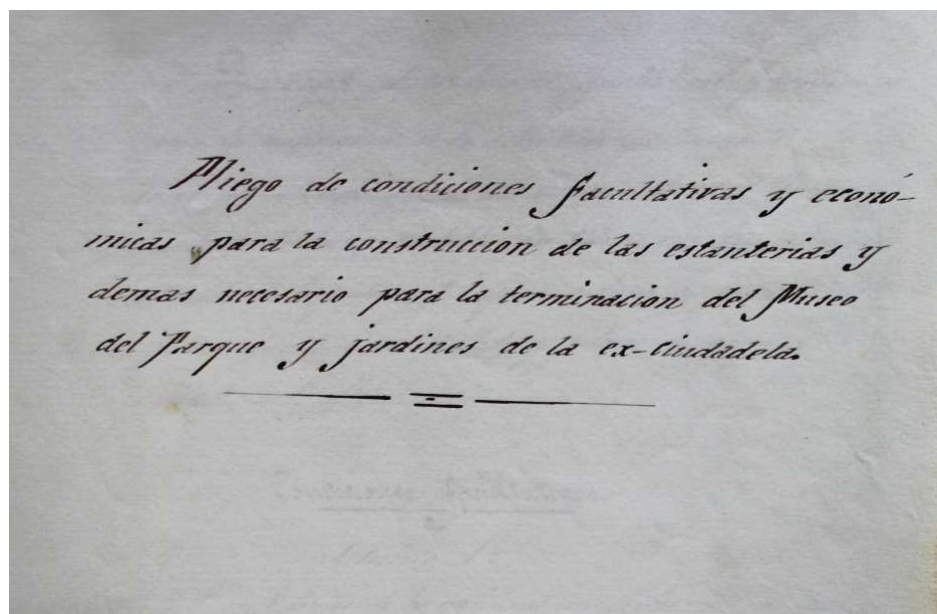 Pliego de condiciones facultativas y econó-
micas para la construccion de las estanterias y
demas necesario para la terminacion del Museo
del Parque y jardines de la ex-Ciudadela.